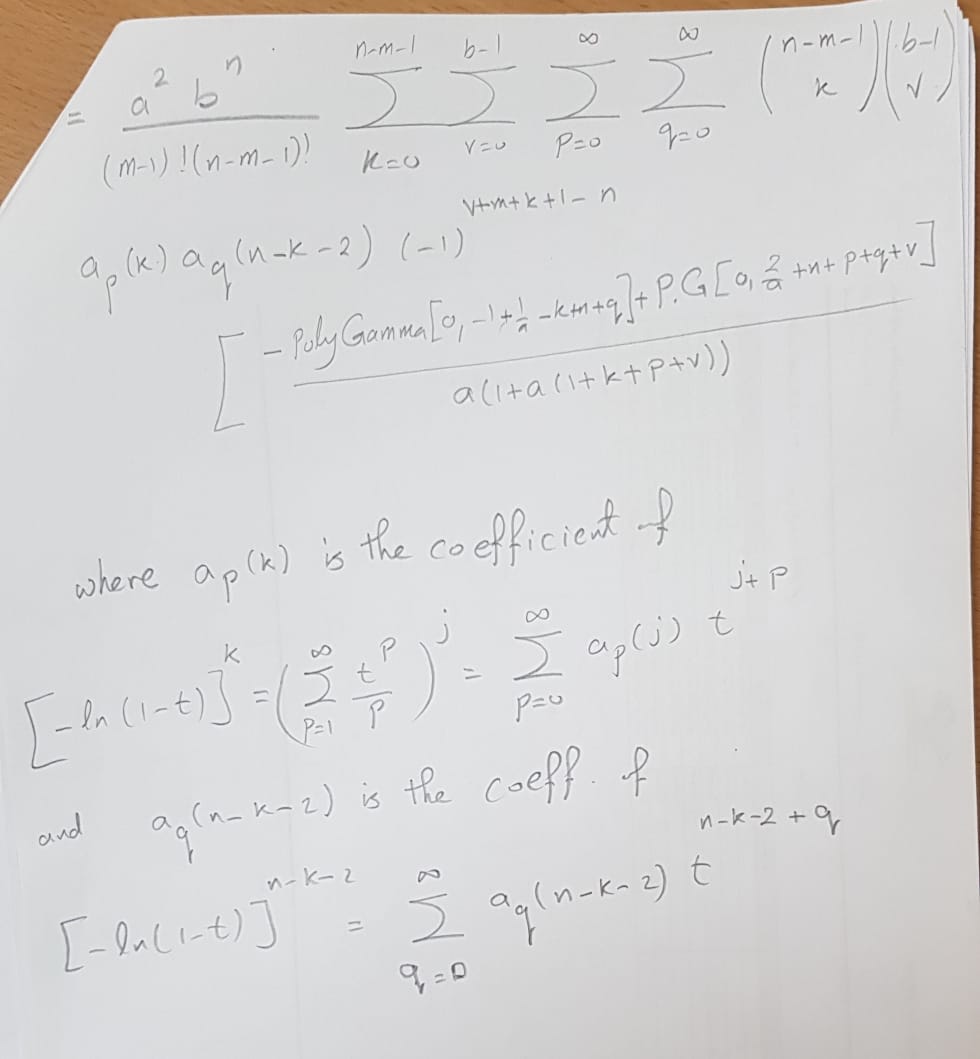 = \frac{a^2 b^n}{(m-1)!(n-m-1)!} \sum_{k=0}^{n-m-1} \sum_{v=0}^{b-1} \sum_{p=0}^{\infty} \sum_{q=0}^{\infty} \binom{n-m-1}{k} \binom{b-1}{v}
a_p(k) a_q(n-k-2) (-1)^{v+m+k+1-n}
\left[ \frac{-PolyGamma[0, -1+\frac{1}{a}-k+n+q] + P.G[0, \frac{2}{a}+n+p+q+v]}{a(1+a(1+k+p+v))}
where a_p(k) is the coefficient of
[-ln(1-t)]^k = \left( \sum_{p=1}^{\infty} \frac{t^p}{p} \right)^j = \sum_{p=0}^{\infty} a_p(j) t^{j+p}
and a_q(n-k-2) is the coeff. of
[-ln(1-t)]^{n-k-2} = \sum_{q=0}^{\infty} a_q(n-k-2) t^{n-k-2+q}